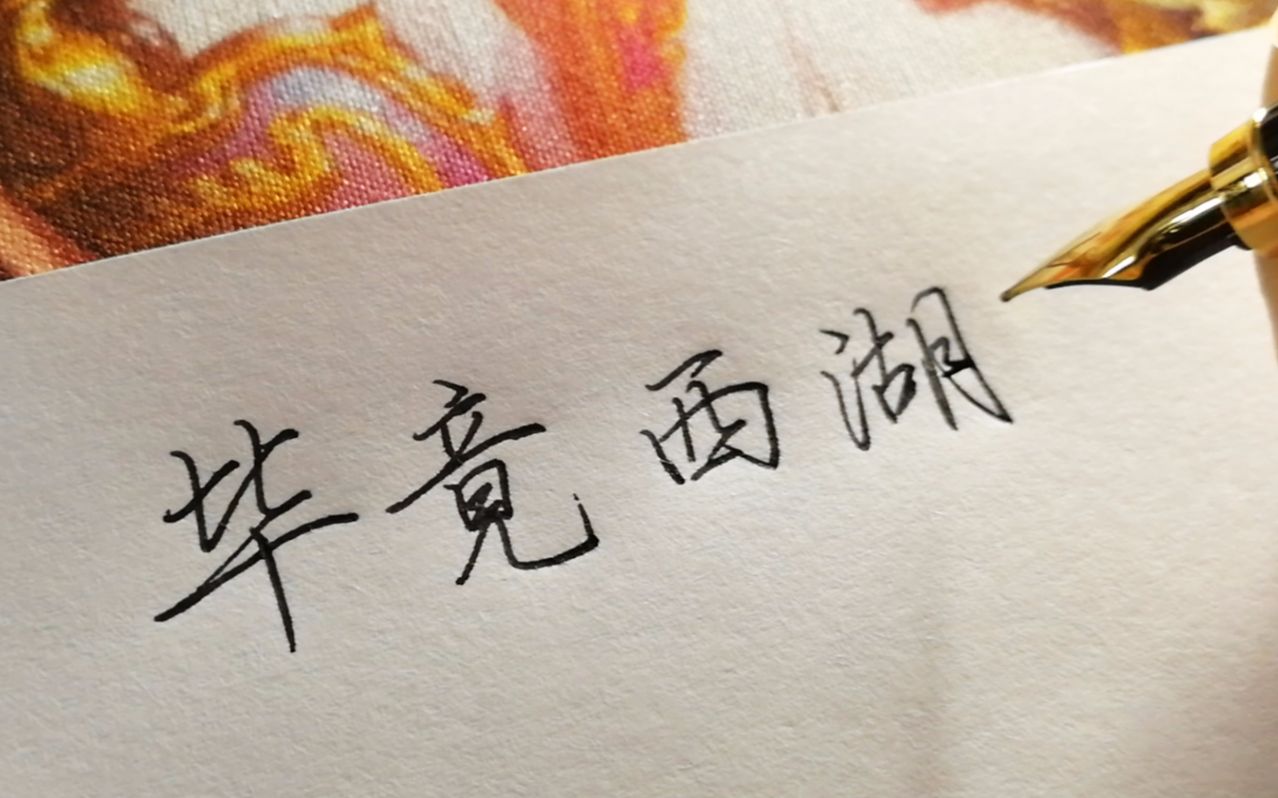 毕竟西湖